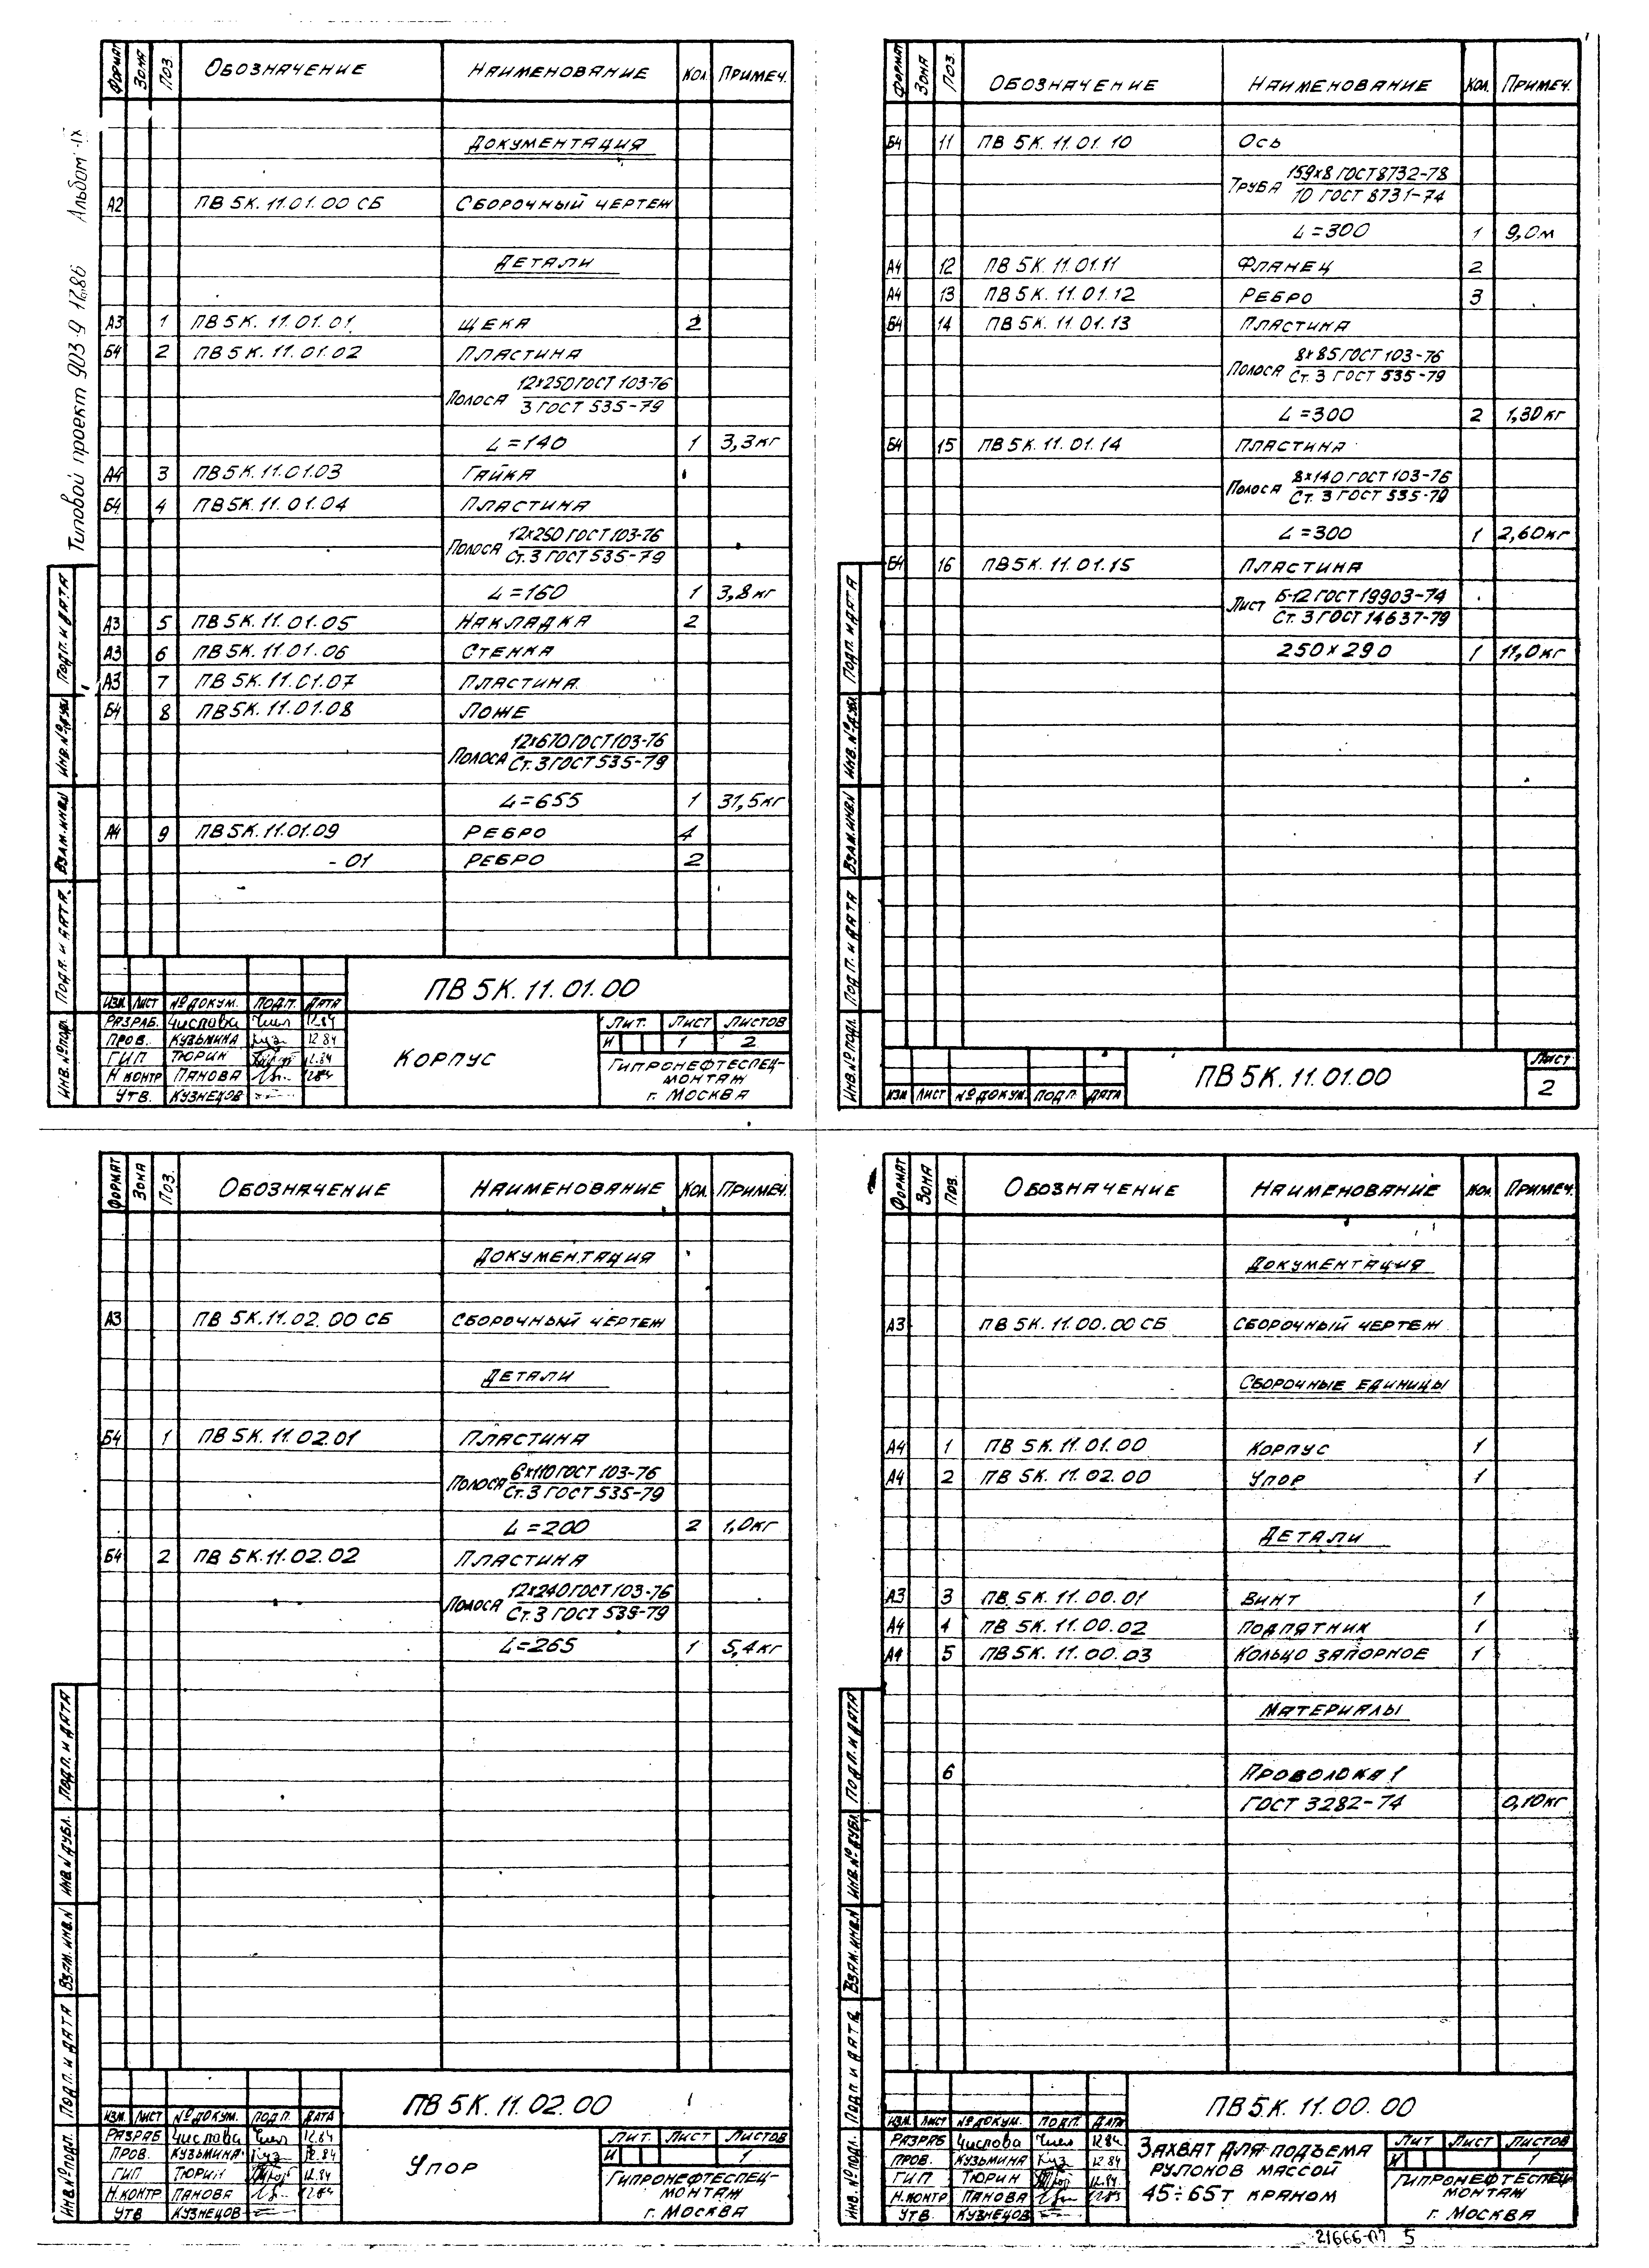 Типовой проект 903 9 12.86 Альбом IX
ФОРМАТ ЗОНА ПОЗ. ОБОЗНАЧЕНИЕ НАИМЕНОВАНИЕ КОЛ. ПРИМЕЧ.
ДОКУМЕНТАЦИЯ
А2 ПВ 5К. 11.01.00 СБ СБОРОЧНЫЙ ЧЕРТЕЖ
ДЕТАЛИ
А3 1 ПВ 5К. 11.01.01 ЩЕКА 2
Б4 2 ПВ 5К. 11.01.02 ПЛАСТИНА
ПОЛОСА 12х250 ГОСТ 103-76
3 ГОСТ 535-79
L=140 1 3,3кг
А4 3 ПВ 5К. 11.01.03 ГАЙКА
Б4 4 ПВ 5К. 11.01.04 ПЛАСТИНА
ПОЛОСА 12х250 ГОСТ 103-76
Ст.3 ГОСТ 535-79
L=160 1 3,8кг
А3 5 ПВ 5К. 11.01.05 НАКЛАДКА 2
А3 6 ПВ 5К. 11.01.06 СТЕНКА
А3 7 ПВ 5К. 11.01.07 ПЛАСТИНА
Б4 8 ПВ 5К. 11.01.08 ЛОЖЕ
ПОЛОСА 12х670 ГОСТ 103-76
Ст.3 ГОСТ 535-79
L=655 1 31,5кг
А4 9 ПВ 5К. 11.01.09 РЕБРО 4
- 01 РЕБРО 2
ПОДП. И ДАТА
ИНВ.№ ДУБЛ
ВЗАМ.ИНВ.№
ПОДП. И ДАТА
ИНВ.№ ПОДЛ.
ПВ 5К. 11.01.00
ИЗМ. ЛИСТ № ДОКУМ. ПОДП. ДАТА
РАЗРАБ. ЧИСЛОВА 12.84
ПРОВ. КУЗЬМИНА 12 84
ГИП ТЮРИН 12.84
Н КОНТР ПАНОВА 12 84
УТВ. КУЗНЕЦОВ
КОРПУС
ЛИТ. ЛИСТ ЛИСТОВ
И 1 2
ГИПРОНЕФТЕСПЕЦ-
МОНТАЖ
г. МОСКВА
ФОРМАТ ЗОНА ПОЗ ОБОЗНАЧЕНИЕ НАИМЕНОВАНИЕ КОЛ. ПРИМЕЧ.
Б4 11 ПВ 5К. 11.01.10 ОСЬ
ТРУБА 159х8 ГОСТ 8732-78
10 ГОСТ 8731-74
L=300 1 9,0м
А4 12 ПВ 5К. 11.01.11 ФЛАНЕЦ 2
А4 13 ПВ 5К. 11.01.12 РЕБРО 3
Б4 14 ПВ 5К. 11.01.13 ПЛАСТИНА
ПОЛОСА 8х85 ГОСТ 103-76
Ст.3 ГОСТ 535-79
L=300 2 1,30кг
Б4 15 ПВ 5К. 11.01.14 ПЛАСТИНА
ПОЛОСА 8х140 ГОСТ 103-76
Ст.3 ГОСТ 535-79
L=300 1 2,60кг
Б4 16 ПВ 5К. 11.01.15 ПЛАСТИНА
ЛИСТ Б-12 ГОСТ 19903-74
Ст.3 ГОСТ 14637-79
250х290 1 11,0кг
ПОДП. И ДАТА
ИНВ.№ ДУБЛ.
ВЗАМ.ИНВ.№
ПОДП. И ДАТА
ИНВ.№ ПОДЛ.
ИЗМ ЛИСТ № ДОКУМ. ПОДП. ДАТА
ПВ 5К. 11.01.00
ЛИСТ
2
ФОРМАТ ЗОНА ПОЗ. ОБОЗНАЧЕНИЕ НАИМЕНОВАНИЕ КОЛ. ПРИМЕЧ.
ДОКУМЕНТАЦИЯ
А3 ПВ 5К. 11.02.00 СБ СБОРОЧНЫЙ ЧЕРТЕЖ
ДЕТАЛИ
Б4 1 ПВ 5К. 11.02.01 ПЛАСТИНА
ПОЛОСА 6х110 ГОСТ 103-76
Ст.3 ГОСТ 535-79
L=200 2 1,0кг
Б4 2 ПВ 5К. 11.02.02 ПЛАСТИНА
ПОЛОСА 12х240 ГОСТ 103-76
Ст.3 ГОСТ 539-79
L=265 1 5,4кг
ПОДП. И ДАТА
ИНВ.№ ДУБЛ.
ВЗАМ.ИНВ.№
ПОДП. И ДАТА
ИНВ.№ ПОДЛ.
ПВ 5К. 11.02.00
ИЗМ. ЛИСТ № ДОКУМ. ПОДП. ДАТА
РАЗРАБ ЧИСЛОВА 12.84
ПРОВ. КУЗЬМИНА 12.84
ГИП ТЮРИН 12.84
Н.КОНТР ПАНОВА 12.84
УТВ КУЗНЕЦОВ
УПОР
ЛИТ. ЛИСТ ЛИСТОВ
И 1
ГИПРОНЕФТЕСПЕЦ-
МОНТАЖ
г. МОСКВА
ФОРМАТ ЗОНА ПОЗ. ОБОЗНАЧЕНИЕ НАИМЕНОВАНИЕ КОЛ. ПРИМЕЧ.
ДОКУМЕНТАЦИЯ
А3 ПВ 5К. 11.00.00 СБ СБОРОЧНЫЙ ЧЕРТЕЖ
СБОРОЧНЫЕ ЕДИНИЦЫ
А4 1 ПВ 5К. 11.01.00 КОРПУС 1
А4 2 ПВ 5К. 11.02.00 УПОР 1
ДЕТАЛИ
А3 3 ПВ 5К. 11.00.01 ВИНТ 1
А4 4 ПВ 5К. 11.00.02 ПОДПЯТНИК 1
А4 5 ПВ 5К. 11.00.03 КОЛЬЦО ЗАПОРНОЕ 1
МАТЕРИАЛЫ
6 ПРОВОЛОКА 1
ГОСТ 3282-74 0,10кг
ПОДП. И ДАТА
ИНВ.№ ДУБЛ
ВЗАМ.ИНВ.№
ПОДП И ДАТА
ИНВ.№ ПОДЛ.
ПВ 5К. 11.00.00
ИЗМ. ЛИСТ № ДОКУМ. ПОДП. ДАТА
РАЗРАБ ЧИСЛОВА 12.84
ПРОВ. КУЗЬМИНА 12 84
ГИП ТЮРИН 12.84
Н.КОНТР ПАНОВА
УТВ. КУЗНЕЦОВ
ЗАХВАТ ДЛЯ ПОДЪЕМА
РУЛОНОВ МАССОЙ
45÷65т КРАНОМ
ЛИТ ЛИСТ ЛИСТОВ
И 1
ГИПРОНЕФТЕСПЕЦ-
МОНТАЖ
г. МОСКВА
21666-07 5